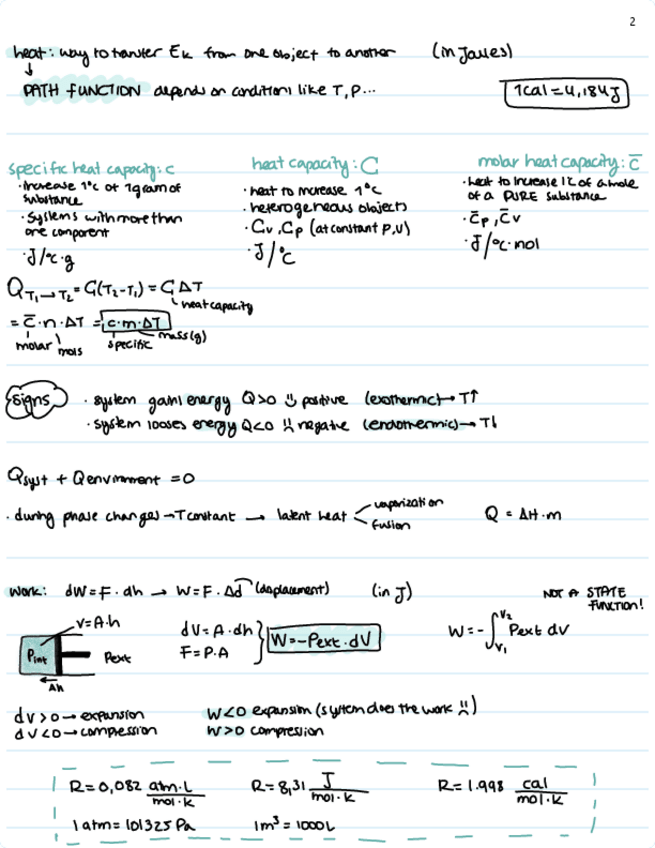 2
heat: way to transfer Ek from one object to another (in Joules)
↓
PATH FUNCTION depends on conditions like T, P...
1cal = 4,184J
specific heat capacity: c
· increase 1°C of 1gram of
substance
· systems with more than
one component
· J/°C·g
heat capacity: C
· heat to increase 1°C
· heterogeneous objects
· Cv, Cp (at constant P,V)
· J/°C
molar heat capacity: c̅
· heat to increase 1°C of a mole
of a PURE substance
· c̅p, c̅v
· J/°C·mol
Q T₁→T₂ = C(T₂-T₁) = C ΔT
heat capacity
= c̅·n·ΔT = c·m·ΔT
molar mols specific mass(g)
signs
· system gains energy Q>0 positive (exothermic) → T↑
· system looses energy Q<0 negative (endothermic) → T↓
Qsyst + Qenvironment = 0
· during phase changes → T constant → latent heat
vaporization
fusion
Q = ΔH·m
work: dW = F·dh → W = F·Δd (displacement) (in J)
NOT A STATE
FUNCTION!
V=A·h
Pint
Pext
Δh
dV = A·dh
F = P·A
W = -Pext·dV
W = -∫V₁V₂ Pext dV
dV>0 → expansion
dV<0 → compression
W<0 expansion (system does the work)
W>0 compression
R = 0,082 atm·L/mol·K
R = 8,31 J/mol·K
R = 1.998 cal/mol·K
1 atm = 101325 Pa
1m³ = 1000L